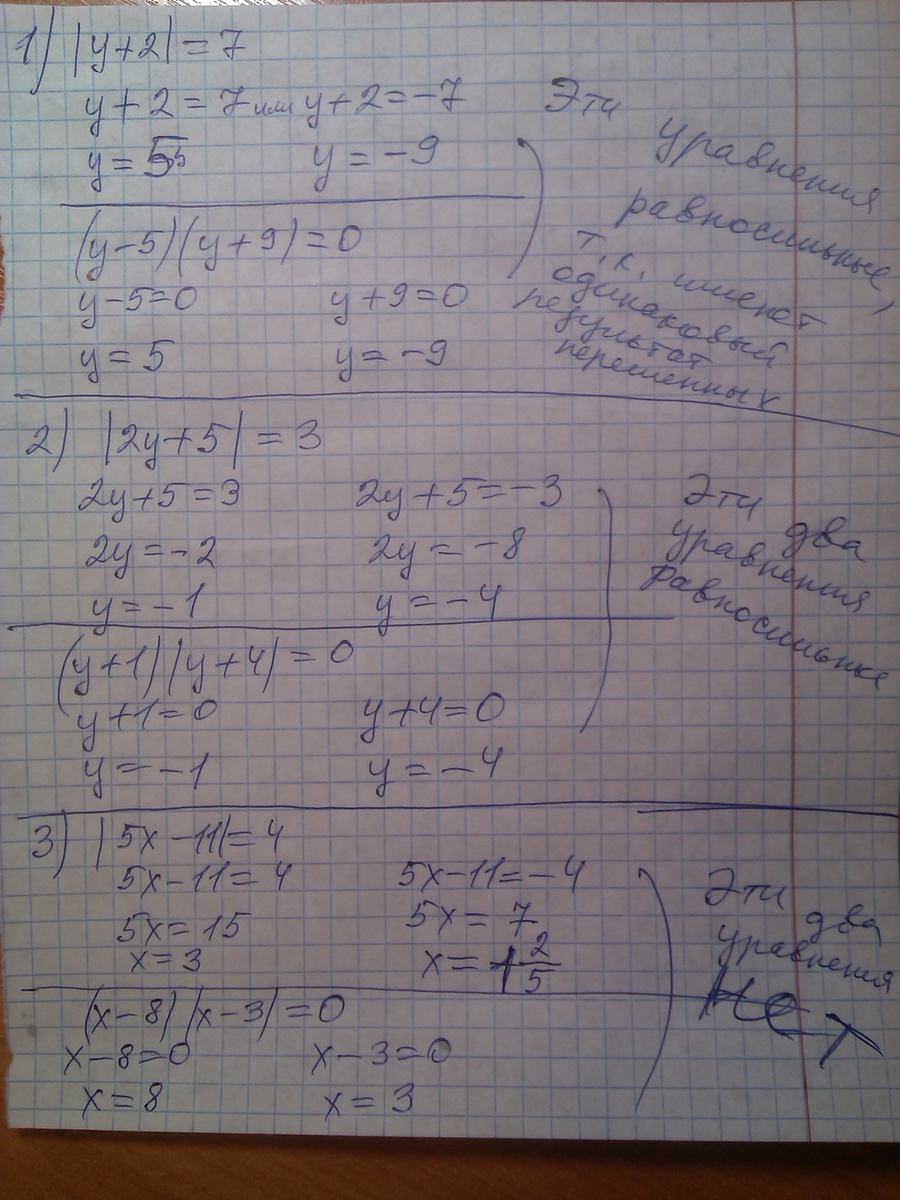 1) |y+2| = 7
y + 2 = 7 или y + 2 = -7
y = 5 5 y = -9
(y-5)(y+9)=0
y-5=0 y+9=0
y = 5 y = -9
Эти
уравнения
равносильные,
т.к. имеют
одинаковый
результат
переменных
2) |2y+5| = 3
2y+5=3 2y+5=-3
2y=-2 2y=-8
y=-1 y=-4
(y+1)(y+4) = 0
y+1=0 y+4=0
y=-1 y=-4
Эти два
уравнения
Равносильные
3) |5x-11|=4
5x-11=4 5x-11=-4
5x=15 5x=7
x=3 x=1 2/5
(x-8)(x-3)=0
x-8=0 x-3=0
x=8 x=3
Эти два
уравнения
нет